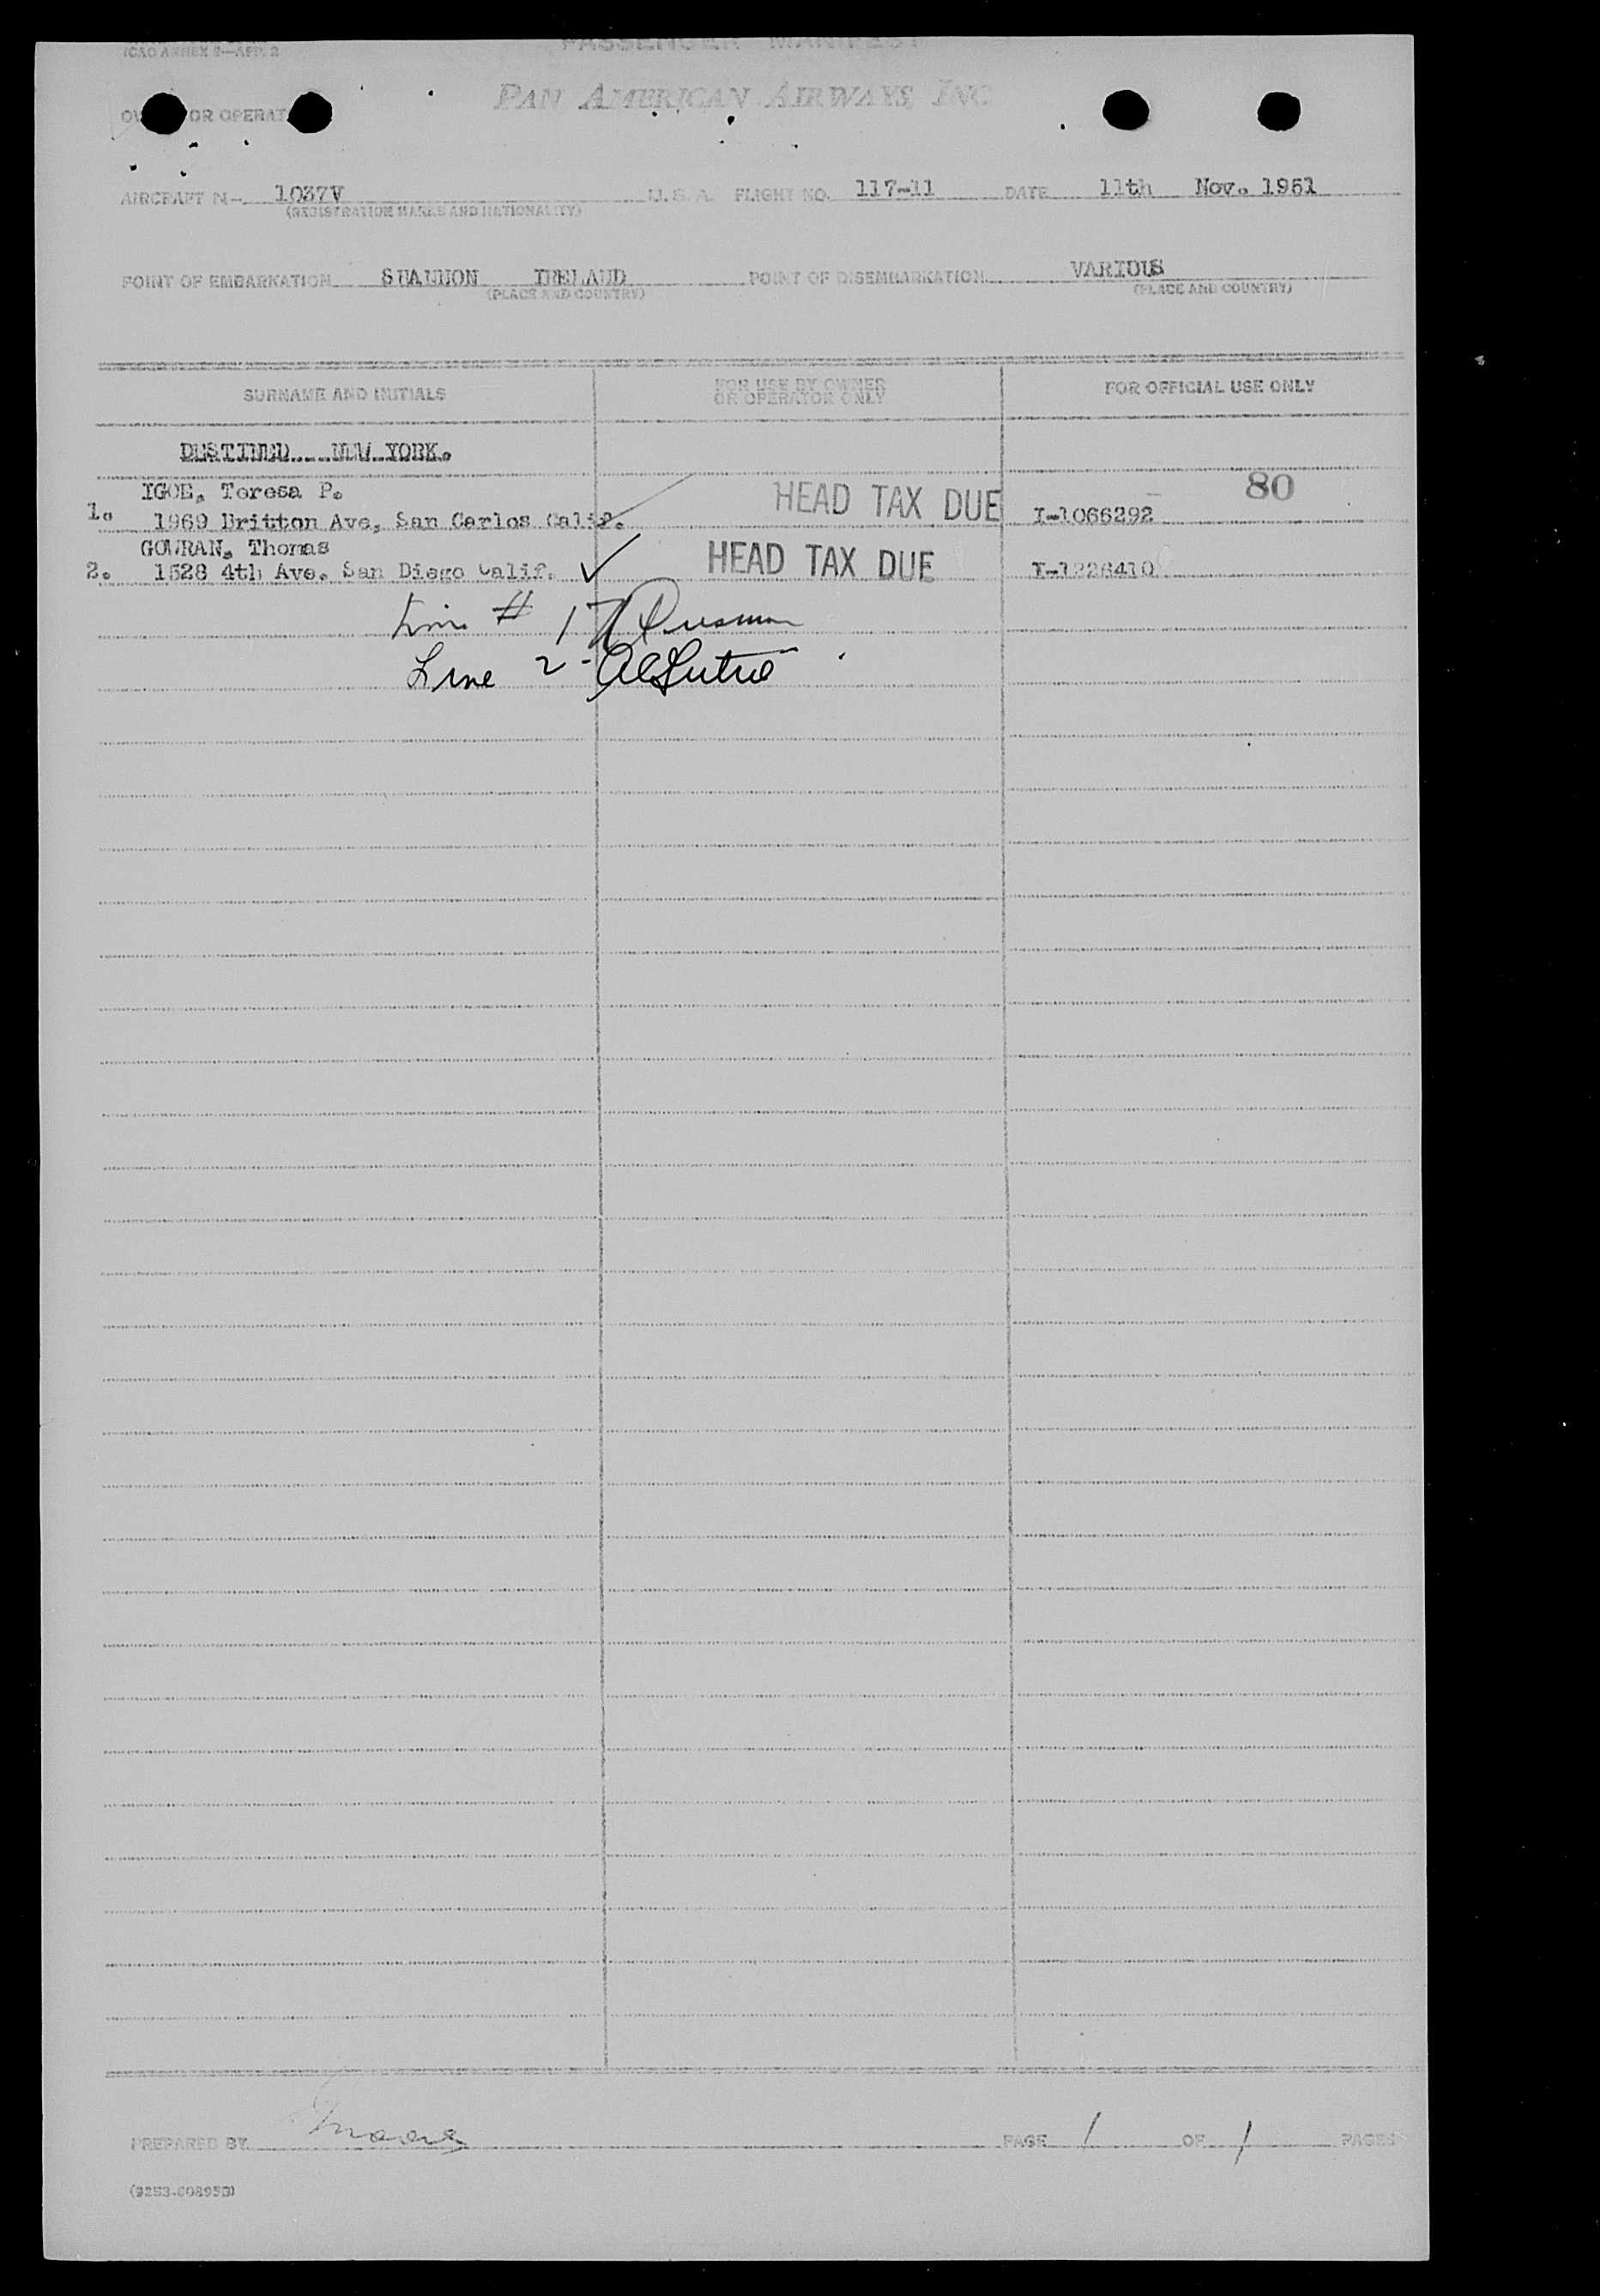 ICAO ANNEX 9—APP. 2
PASSENGER MANIFEST
PAN AMERICAN AIRWAYS, INC
OR OPERAT
AIRCRAFT N- 1037V U. S. A. FLIGHT NO. 117-11 DATE 11th Nov. 1951
(REGISTRATION MARKS AND NATIONALITY)
POINT OF EMBARKATION SHANNON IRELAND POINT OF DISEMBARKATION VARIOUS
(PLACE AND COUNTRY) (PLACE AND COUNTRY)
SURNAME AND INITIALS FOR USE BY OWNER OR OPERATOR ONLY FOR OFFICIAL USE ONLY
DESTINED NEW YORK.
IGOE, Teresa P. HEAD TAX DUE 80
1. 1969 Britton Ave, San Carlos Calif. I-1066292
GOWRAN, Thomas HEAD TAX DUE
2. 1528 4th Ave. San Diego Calif. ✓ I-1226410
Line # 1
Line 2 -
PREPARED BY Moore PAGE 1 OF 1 PAGES